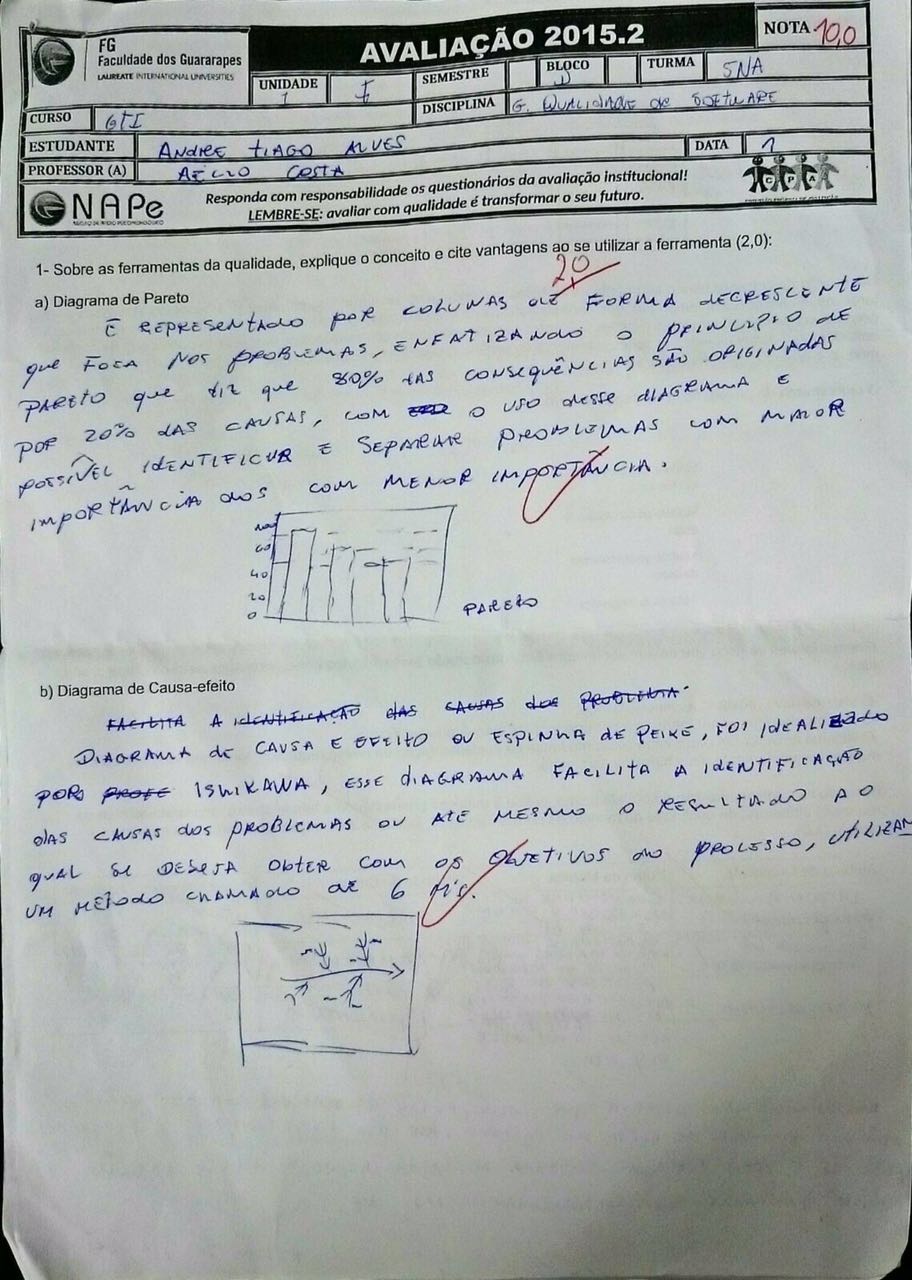 FG
Faculdade dos Guararapes
LAUREATE INTERNATIONAL UNIVERSITIES
AVALIAÇÃO 2015.2
NOTA 10,0
UNIDADE 1 I
SEMESTRE
BLOCO
TURMA 5NA
CURSO GTI
DISCIPLINA G. QUALIDADE de SOFTWARE
ESTUDANTE ANDRE TIAGO ALVES
DATA
PROFESSOR (A) AÉCIO COSTA
CPA
NAPe
Responda com responsabilidade os questionários da avaliação institucional!
LEMBRE-SE: avaliar com qualidade é transformar o seu futuro.
1- Sobre as ferramentas da qualidade, explique o conceito e cite vantagens ao se utilizar a ferramenta (2,0):
2,0
a) Diagrama de Pareto
É REPRESENTADO POR COLUNAS DE FORMA DECRESCENTE
que FOCA NOS PROBLEMAS, ENFATIZANDO O PRINCÍPIO DE
PARETO que diz que 80% DAS CONSEQUÊNCIAS SÃO ORIGINADAS
POR 20% DAS CAUSAS, COM O USO desse DIAGRAMA E
POSSÍVEL IDENTIFICAR E SEPARAR PROBLEMAS COM MAIOR
IMPORTÂNCIA dos COM MENOR IMPORTÂNCIA.
60
40
20
0
PARETO
b) Diagrama de Causa-efeito
FACILITA A IDENTIFICAÇÃO das CAUSAS dos PROBLEMA
DIAGRAMA de CAUSA E EFEITO OU ESPINHA DE PEIXE, FOI IDEALIZADO
POR ISHIKAWA, ESSE DIAGRAMA FACILITA A IDENTIFICAÇÃO
das CAUSAS dos PROBLEMAS OU ATÉ MESMO O RESULTADO AO
qual se DESEJA OBTER COM OS OBJETIVOS do PROCESSO, UTILIZAM
UM MÉTODO CHAMADO DE 6 M's.